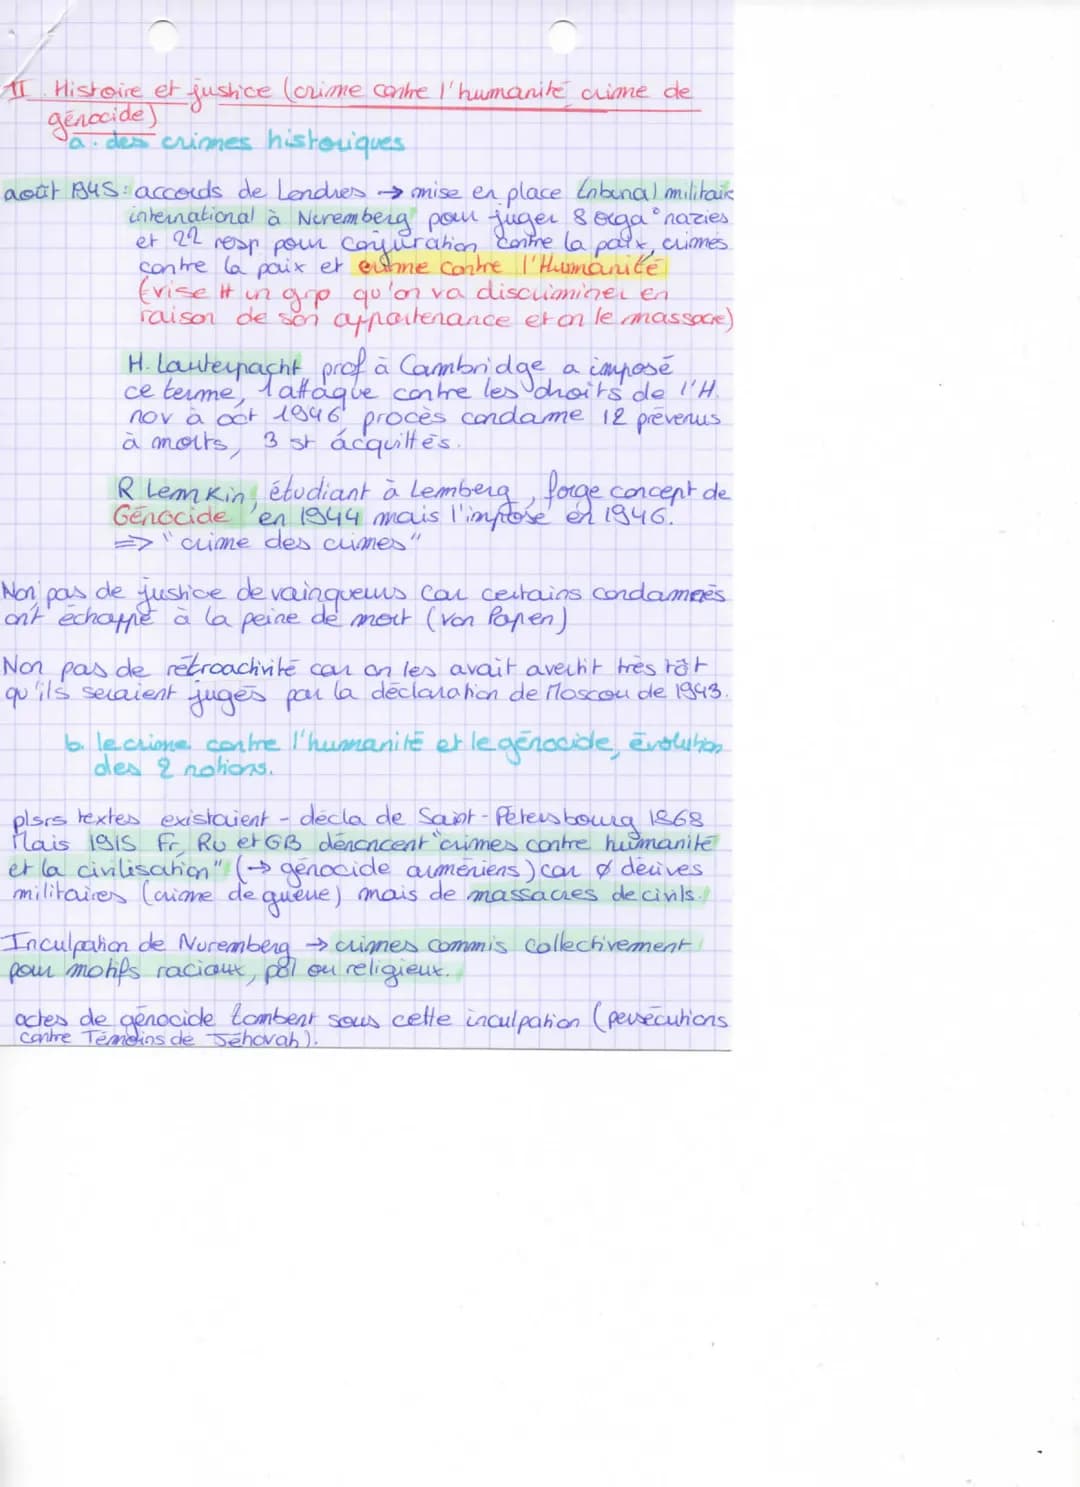 II. Histoire et justice (crime contre l'humanité crime de
génocide)
a. des crimes historiques
août 1945 : accords de Londres → mise en place tribunal militaire
international à Nuremberg pour juger 8 orga° nazies
et 22 resp pour conjuration contre la paix, crimes
contre la paix et crime contre l'Humanité
(vise # un grp qu'on va discriminer en
raison de son appartenance et on le massacre)
H. Lauterpacht prof à Cambridge a imposé
ce terme, 1 attaque contre les droits de l'H.
nov à oct 1946 procès condame 12 prévenus
à morts, 3 st acquittés.
R Lemkin, étudiant à Lemberg, forge concept de
Génocide en 1944 mais l'impose en 1946.
=> "crime des crimes"
Non pas de justice de vainqueurs car certains condamnés
ont échappé à la peine de mort (von Papen)
Non pas de rétroactivité car on les avait avertit très tôt
qu'ils seraient jugés par la déclaration de Moscou de 1943.
b. le crime contre l'humanité et le génocide, évolution
des 2 notions.
plsrs textes existaient - décla de Saint-Pétersbourg 1868
Mais 1915 Fr, Ru et GB dénoncent "crimes contre humanité
et la civilisation" (→ génocide arméniens) car ø dérives
militaires (crime de guerre) mais de massacres de civils.
Inculpation de Nuremberg → crimes commis collectivement
pour motifs raciaux, pol ou religieux.
actes de génocide tombent sous cette inculpation (persécutions
contre Témoins de Jéhovah).